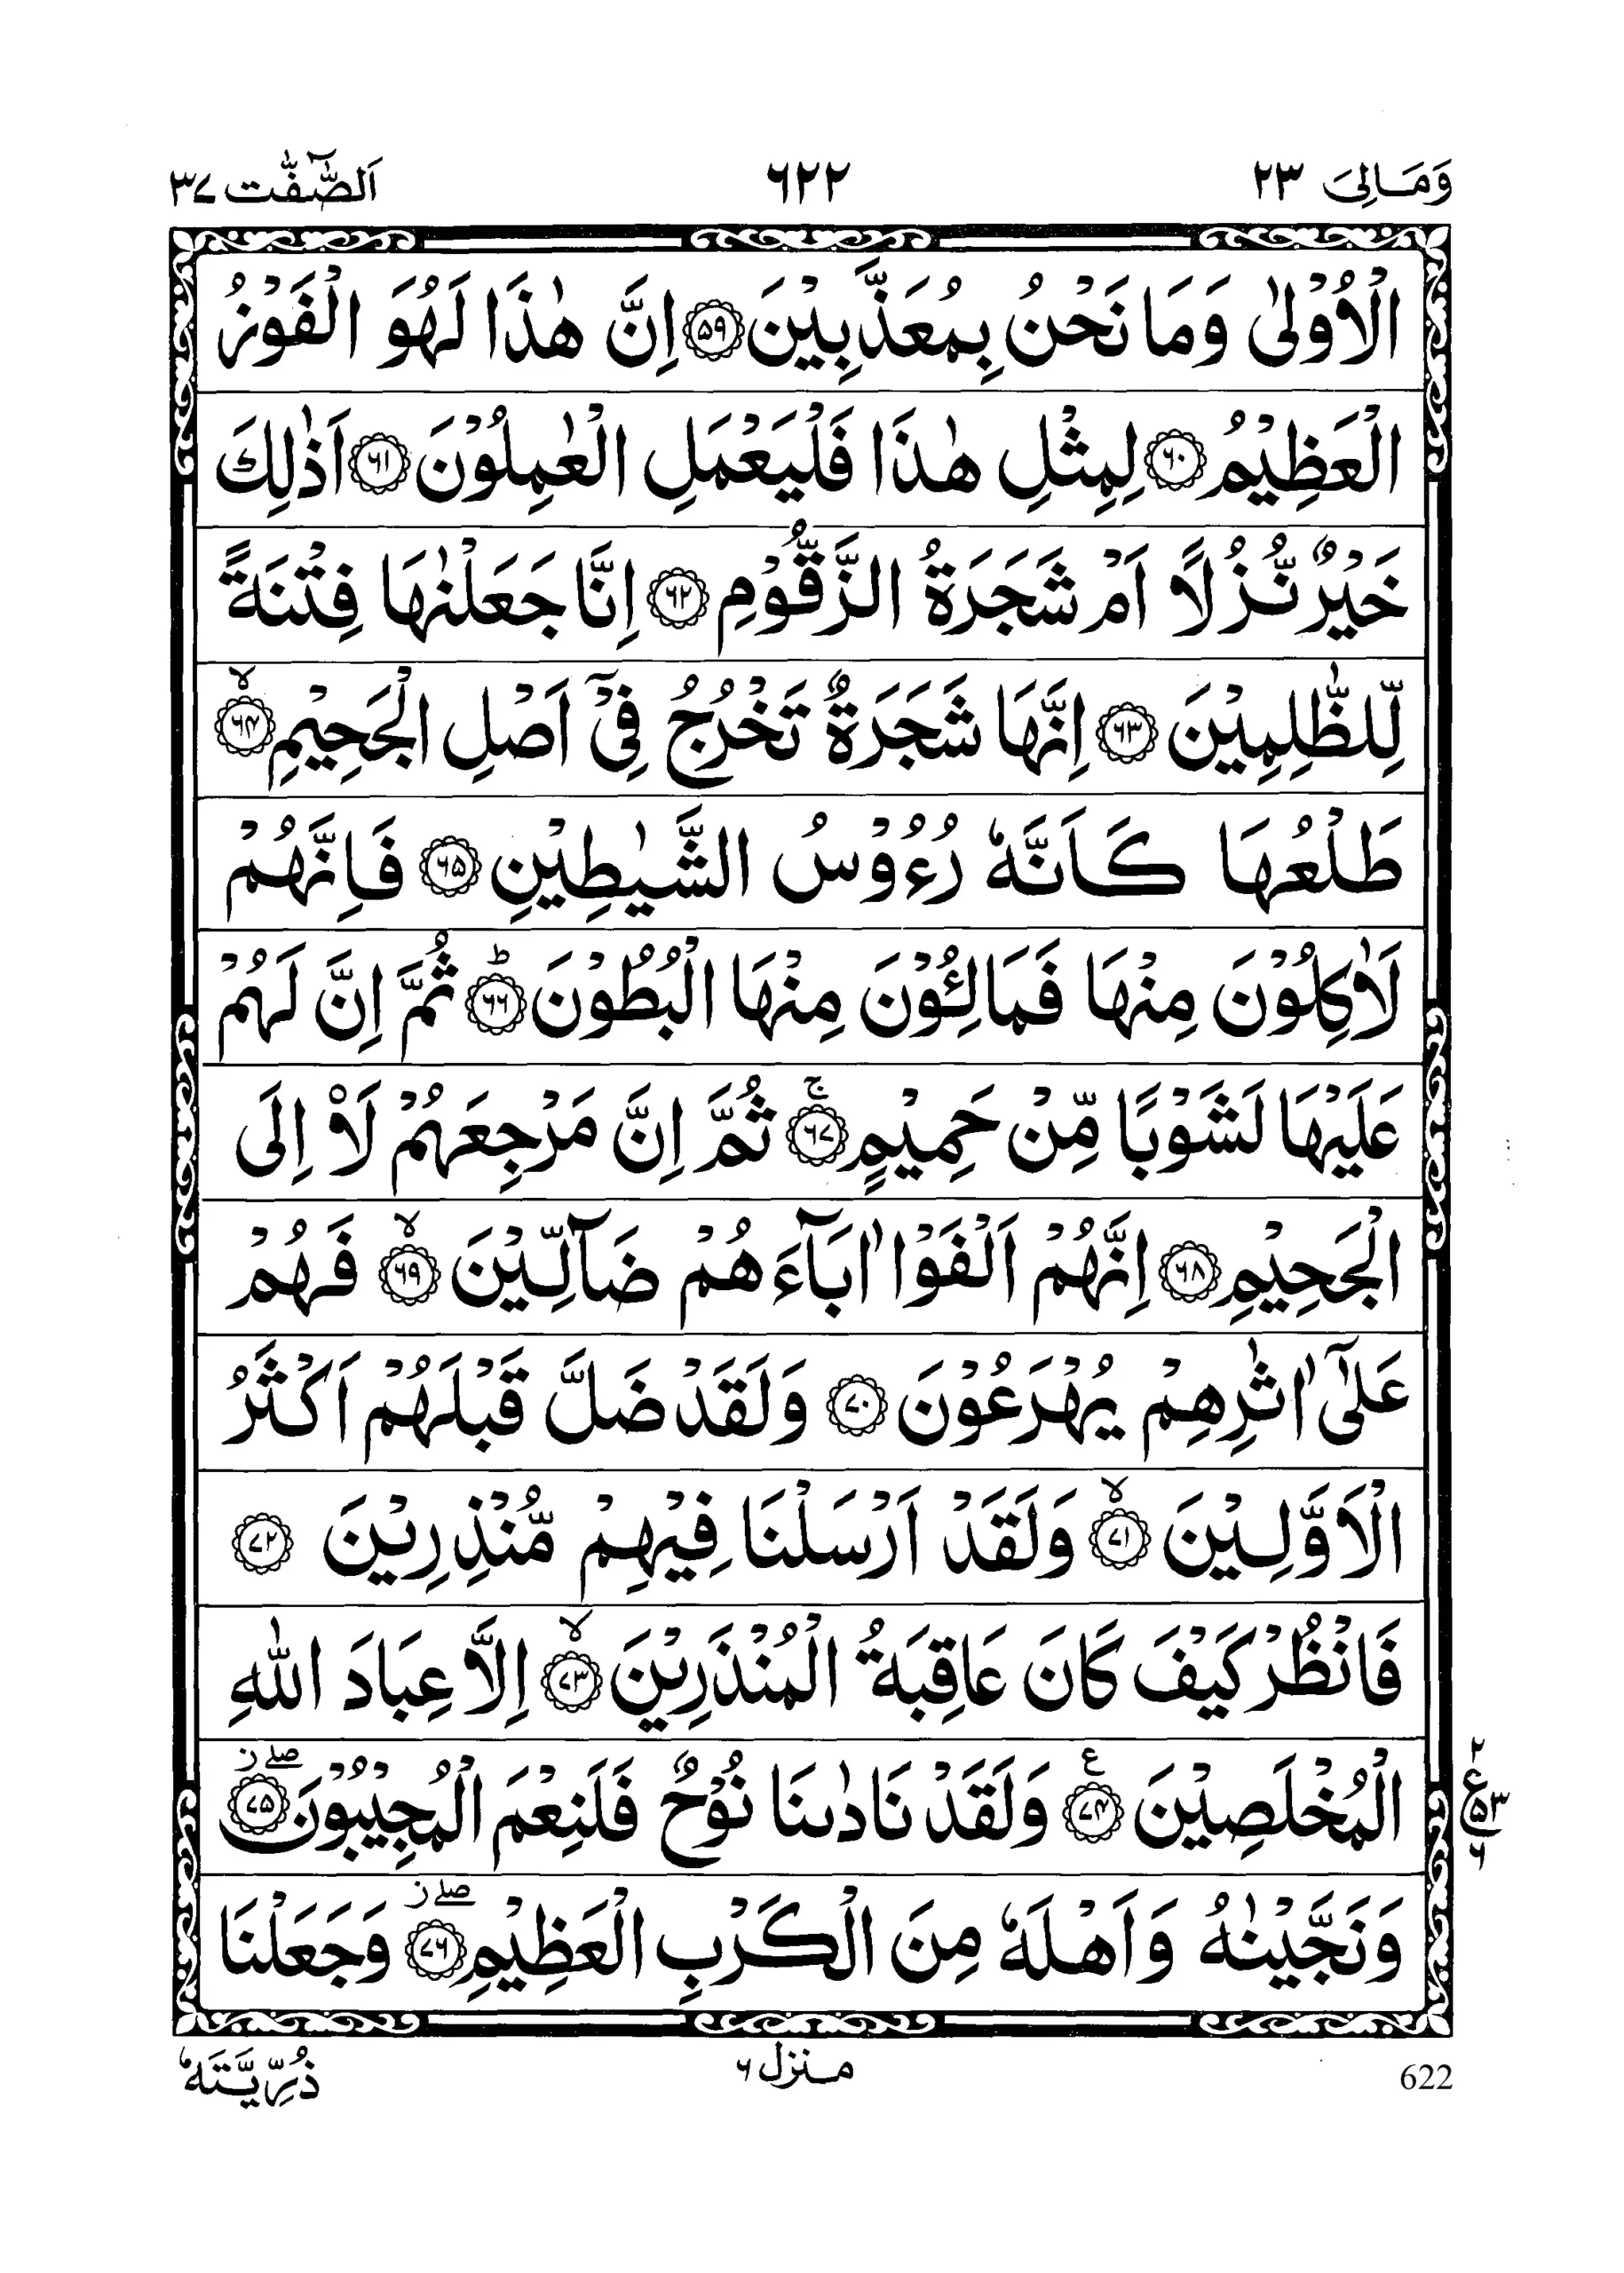 وَمَالِیَ ٢٣ ٦٢٢ اَلصّٰٓفّٰت ٣٧
الْاُوْلٰى وَمَا نَحْنُ بِمُعَذَّبِيْنَ ﴿٥٩﴾ اِنَّ هٰذَا لَهُوَ الْفَوْزُ
الْعَظِيْمُ ﴿٦٠﴾ لِمِثْلِ هٰذَا فَلْيَعْمَلِ الْعٰمِلُوْنَ ﴿٦١﴾ اَذٰلِكَ
خَيْرٌ نُّزُلًا اَمْ شَجَرَةُ الزَّقُّوْمِ ﴿٦٢﴾ اِنَّا جَعَلْنٰهَا فِتْنَةً
لِّلظّٰلِمِيْنَ ﴿٦٣﴾ اِنَّهَا شَجَرَةٌ تَخْرُجُ فِيْٓ اَصْلِ الْجَحِيْمِ ۙ﴿٦٤﴾
طَلْعُهَا كَاَنَّهٗ رُءُوْسُ الشَّيٰطِيْنِ ﴿٦٥﴾ فَاِنَّهُمْ
لَاٰكِلُوْنَ مِنْهَا فَمَالِـُٔوْنَ مِنْهَا الْبُطُوْنَ ؕ﴿٦٦﴾ ثُمَّ اِنَّ لَهُمْ
عَلَيْهَا لَشَوْبًا مِّنْ حَمِيْمٍ ۚ﴿٦٧﴾ ثُمَّ اِنَّ مَرْجِعَهُمْ لَا۟ اِلَى
الْجَحِيْمِ ﴿٦٨﴾ اِنَّهُمْ اَلْفَوْا اٰبَآءَهُمْ ضَآلِّيْنَ ۙ﴿٦٩﴾ فَهُمْ
عَلٰٓى اٰثٰرِهِمْ يُهْرَعُوْنَ ﴿٧٠﴾ وَلَقَدْ ضَلَّ قَبْلَهُمْ اَكْثَرُ
الْاَوَّلِيْنَ ۙ﴿٧١﴾ وَلَقَدْ اَرْسَلْنَا فِيْهِمْ مُّنْذِرِيْنَ ﴿٧٢﴾
فَانْظُرْ كَيْفَ كَانَ عَاقِبَةُ الْمُنْذَرِيْنَ ۙ﴿٧٣﴾ اِلَّا عِبَادَ اللّٰهِ
الْمُخْلَصِيْنَ ﴿٧٤﴾ ع وَلَقَدْ نَادٰىنَا نُوْحٌ فَلَنِعْمَ الْمُجِيْبُوْنَ ۖز ﴿٧٥﴾ ٢ ع ٥٣ ٦
وَنَجَّيْنٰهُ وَاَهْلَهٗ مِنَ الْكَرْبِ الْعَظِيْمِ ۖز ﴿٧٦﴾ وَجَعَلْنَا
ذُرِّيَّتَهٗ منزل ٦ 622